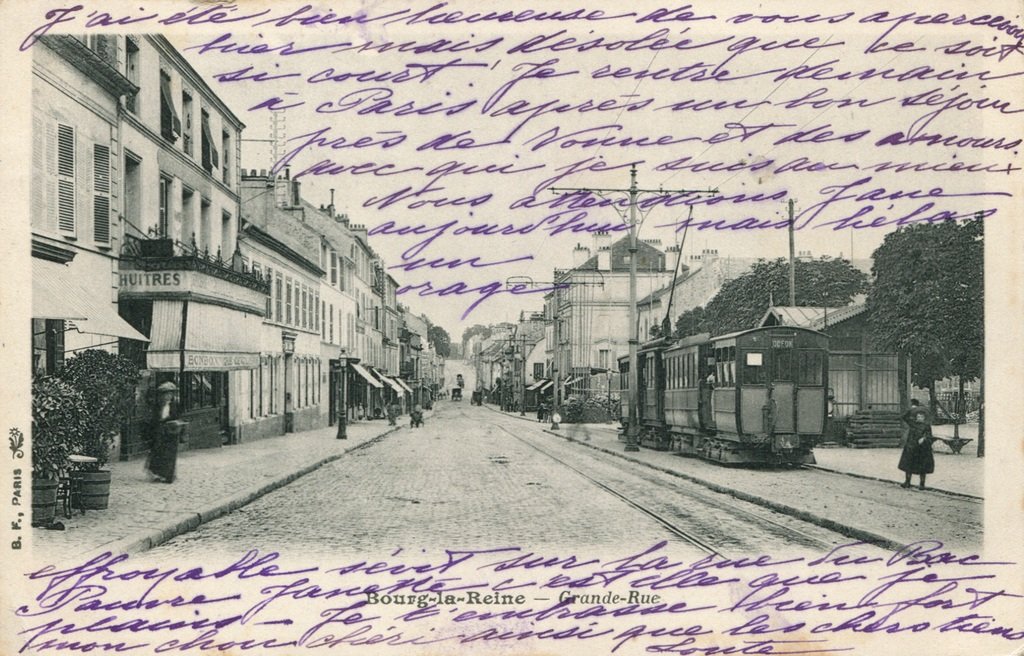 J'ai été bien heureuse de vous apercevoir
hier mais désolée que ce soit
si court. Je rentre demain
à Paris après un bon séjour
près de Nonne et des amours
avec qui je suis au mieux
Nous attendions Jane
aujourd'hui mais hélas
un
orage
HUITRES
ODEON
14
B. F., PARIS
effroyable sévit sur la rue du Bac
Pauvre Janette c'est elle que je
Bourg-la-Reine — Grande-Rue
plains — Je t'embrasse bien fort
mon chou chéri ainsi que les